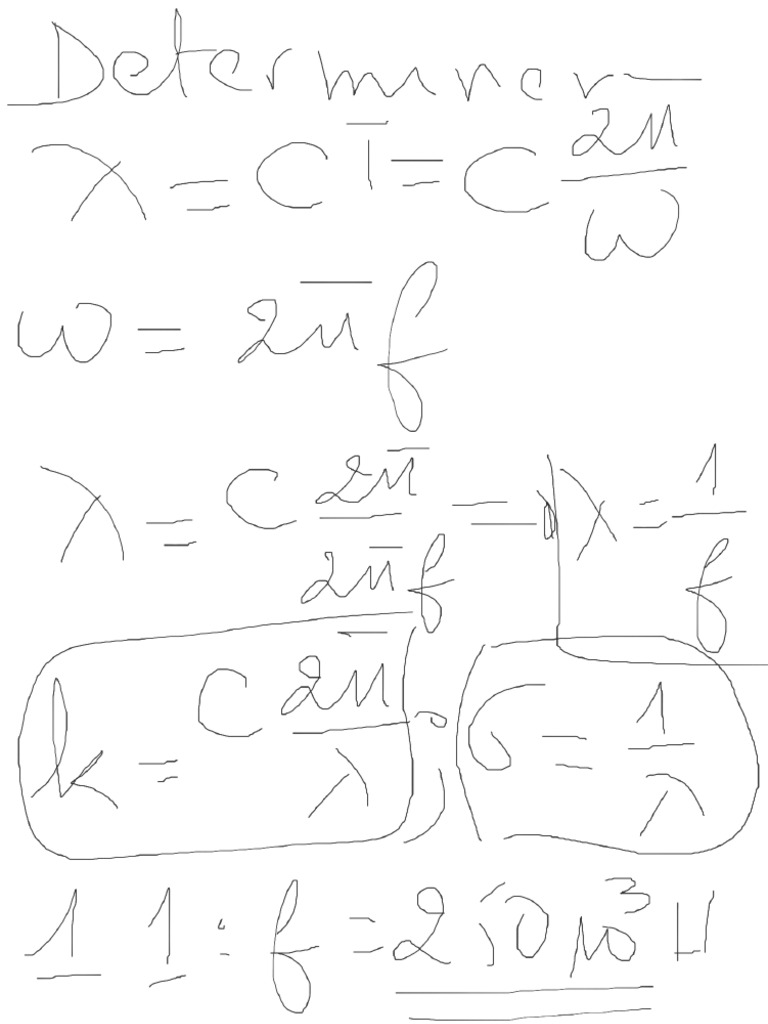 Determiner
λ = CT = C 2π/ω
ω = 2πf
λ = C 2π/2πf ⇒ λ = 1/f
k = C 2π/λ ; σ = 1/λ
1 1 : f = 2,0 10³ H